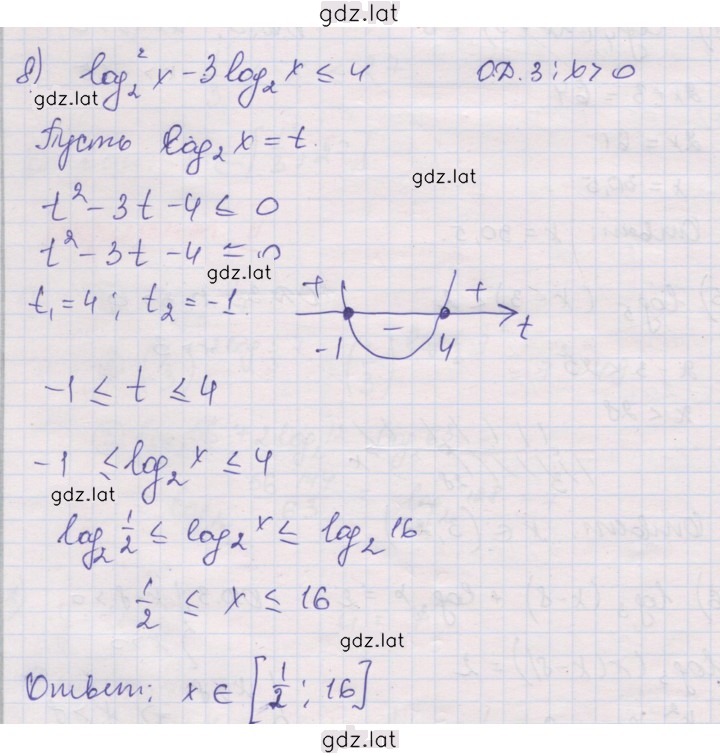 gdz.lat
8) log₂² x - 3 log₂ x ≤ 4 О.Д.З; x > 0
gdz.lat
Пусть log₂ x = t.
gdz.lat
t² - 3t - 4 ≤ 0
t² - 3t - 4 = 0
gdz.lat
t₁ = 4; t₂ = -1.
+ - +
-1 4 t
-1 ≤ t ≤ 4
-1 ≤ log₂ x ≤ 4
gdz.lat
log₂ 1/2 ≤ log₂ x ≤ log₂ 16
1/2 ≤ x ≤ 16
gdz.lat
Ответ; x ∈ [1/2 ; 16]
gdz.lat